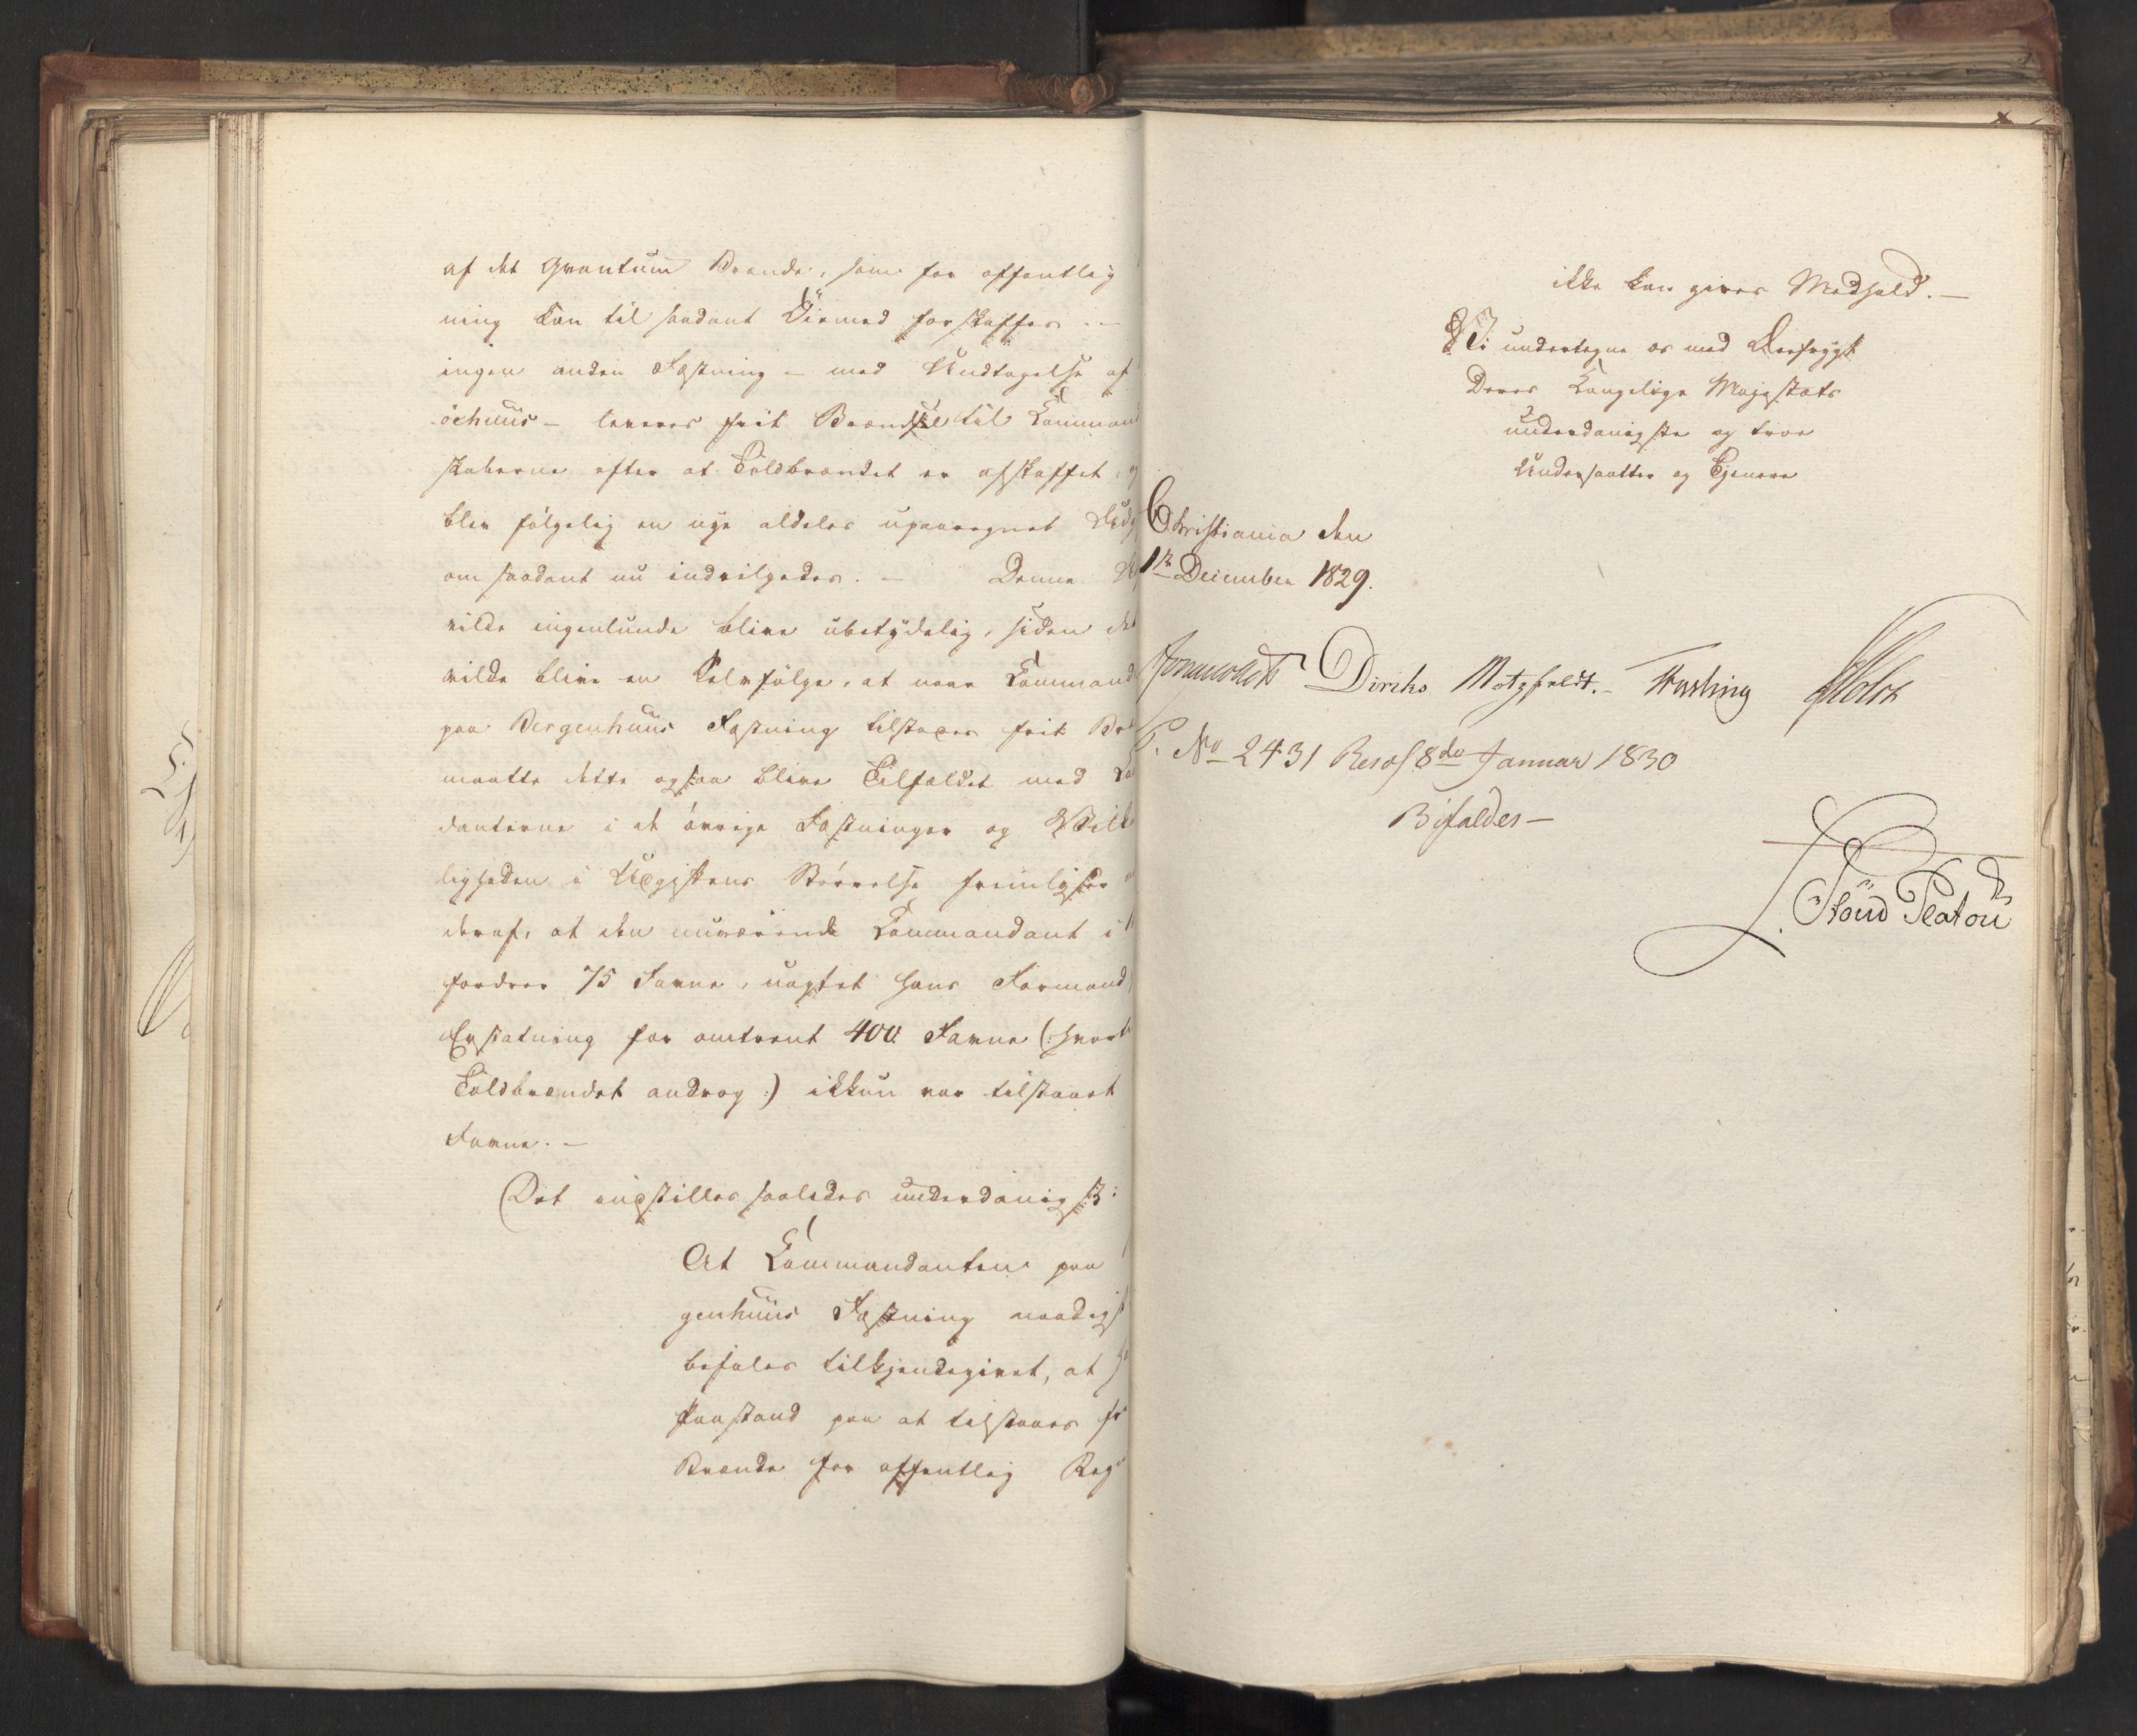 af det Qvantum Brænde, som for offentlig
ning kan til saadant Øiemed forskaffes. —
ingen anden Fæstning — med Undtagelse af
öehuus — leveres frit Brændsel til Komman
skaberne efter at Toldbrændet er afskaffet, o
blev følgelig en nye aldeles upaaregnet Udg
om saadant nu indvilgedes. — Denne
vilde ingenlunde blive ubetydelig, siden det
vilde blive en Selvfølge, at naar Kommand
paa Bergenhuus Fæstning tilstaaes frit Bræ
maatte dette ogsaa blive Tilfældet med Ko
danterne i de øvrige Fæstninger og Vilk
ligheden i Udgiftens Størrelse fremlyser
deraf, at den nuværende Kommandant i
fordrer 75 Favne, uagtet hans Formand
Erstatning for omtrent 400 Favne (: hvort
Toldbrændet androg :) ikkun var tilstaaet
Favne. —
Det indstilles saaledes underdanigst:
At Kommandanten paa
genhuus Fæstning naadigst
befales tilkjendegivet, at h
Paastand paa at tilstaaes fr
Brænde for offentlig Reg
ikke kan gives Medhold. —
Vi undertegne os med Ærefrygt
Deres Kongelige Majestæts
underdanigste og troe
Undersaatter og Tjenere
Christiania den
1ste December 1829.
Diriks Motzfeldt. — Fasting Holst
No 2431 Resol. 8de Januar 1830
Bifaldes —
Stoud Platou